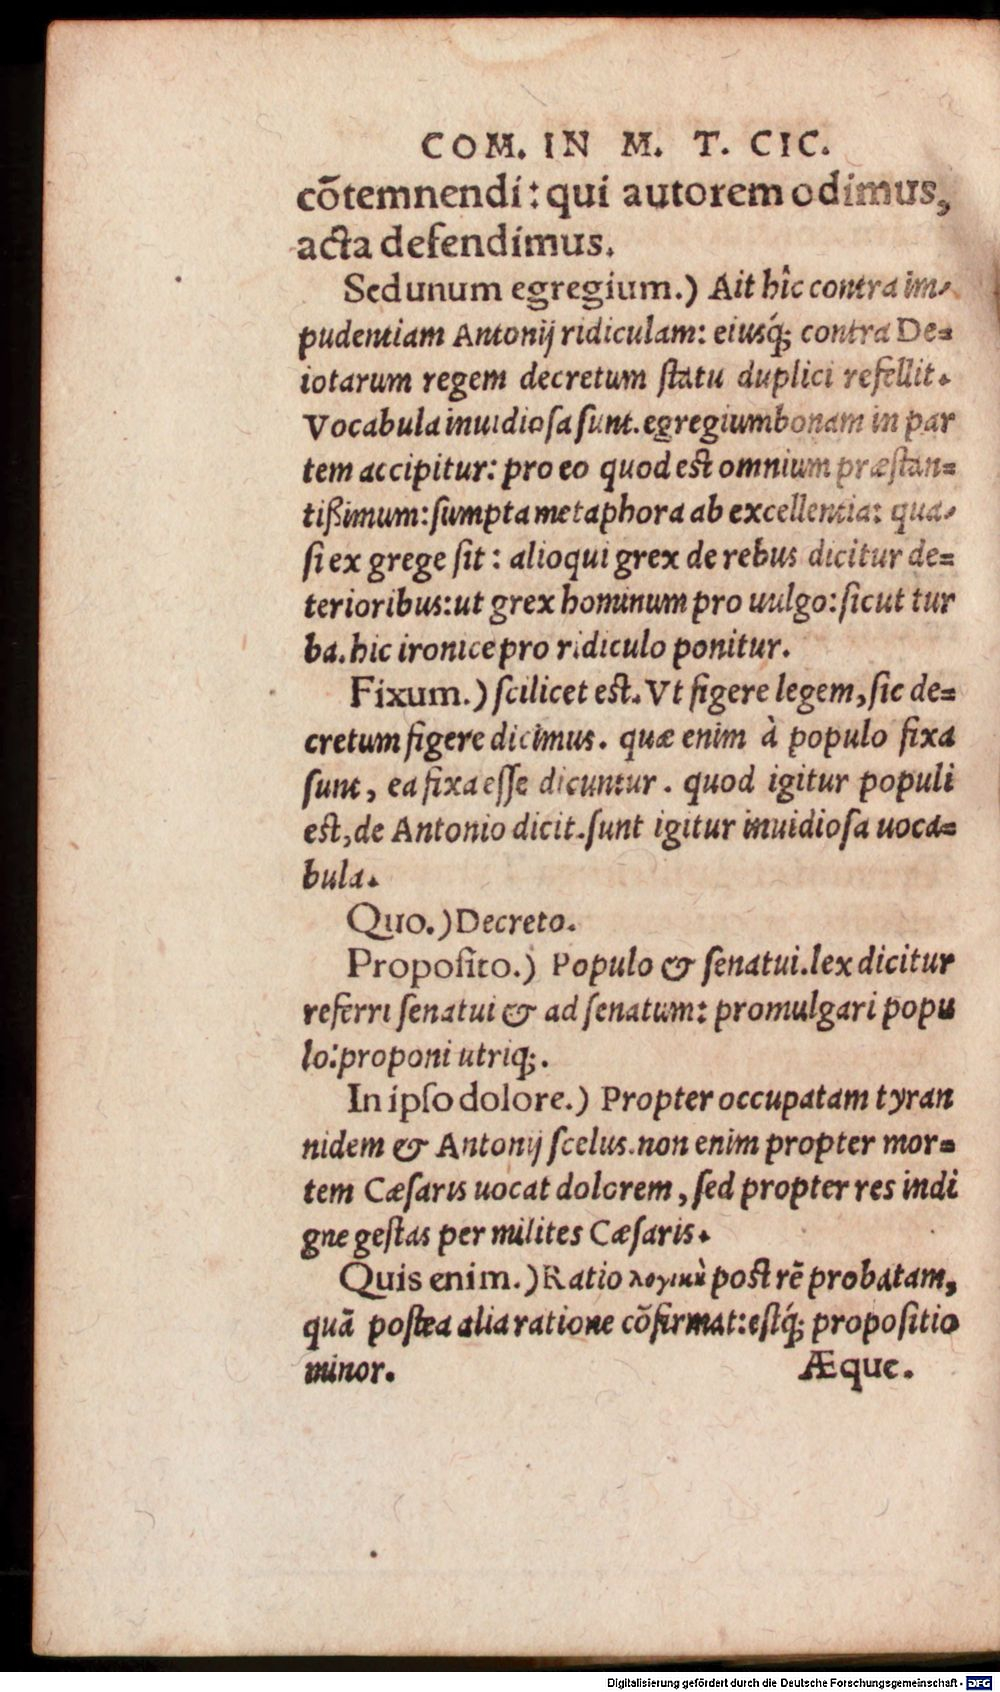 COM. IN M. T. CIC.
cōtemnendi: qui autorem odimus,
acta defendimus.
Sed unum egregium.) Ait hîc contra im-
pudentiam Antonij ridiculam: eiusq́; contra De=
iotarum regem decretum ſtatu duplici refellit.
Vocabula inuidioſa ſunt. egregium bonam in par
tem accipitur: pro eo quod est omnium præſtan=
tißimum: ſumpta metaphora ab excellentia: qua-
ſi ex grege ſit: alioqui grex de rebus dicitur de=
terioribus: ut grex hominum pro uulgo: ſicut tur
ba. hic ironice pro ridiculo ponitur.
Fixum.) ſcilicet eſt. Vt figere legem, ſic de=
cretum figere dicimus. quæ enim à populo fixa
ſunt, ea fixa eſſe dicuntur. quod igitur populi
eſt, de Antonio dicit. ſunt igitur inuidioſa uoca=
bula.
Quo.) Decreto.
Propoſito.) Populo & ſenatui. lex dicitur
referri ſenatui & ad ſenatum: promulgari popu
lo: proponi utriq;.
In ipſo dolore.) Propter occupatam tyran
nidem & Antonij ſcelus. non enim propter mor=
tem Cæſaris uocat dolorem, ſed propter res indi
gne geſtas per milites Cæſaris.
Quis enim.) Ratio λογικὴ post rē probatam,
quā poſtea alia ratione cōfirmat: eſtq́; propoſitio
minor.
Æque.
Digitalisierung gefördert durch die Deutsche Forschungsgemeinschaft - DFG